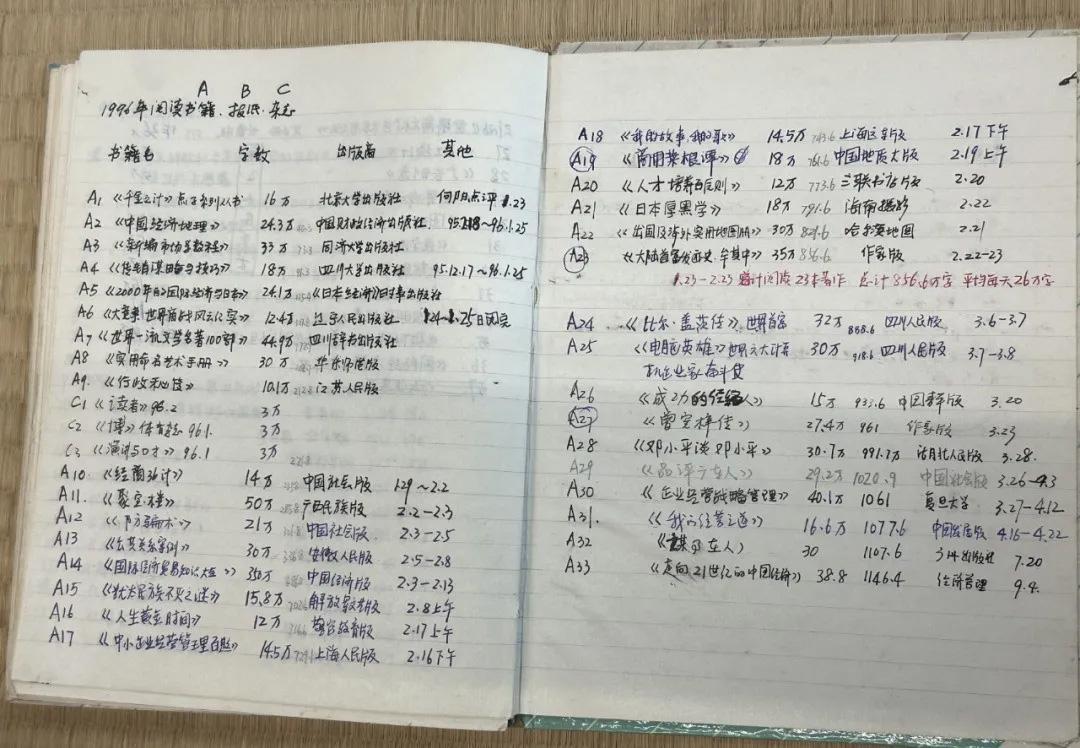 A B C
1996年阅读书籍、报纸、杂志
书籍名 字数 出版商 其他
A1 《千里之计》点子系列丛书 16万 北京大学出版社 何阳点评 1.23
A2 《中国经济地理》 24.3万 中国财政经济出版社 95.12.18~96.1.25
A3 《新编市场学教程》 33万 同济大学出版社
A4 《传销谋略与技巧》 18万 四川大学出版社 95.12.17~96.1.25
A5 《2000年的国际经济与日本》 24.1万 《日本经济》时事出版社
A6 《大竞争 世界商战风云纪实》 12.4万 辽宁人民出版社 1.24~1.25日阅完
A7 《世界一流文学名著100部》 44.9万 四川辞书出版社
A8 《实用命名艺术手册》 30万 华东师范版
A9. 《行政秘诀》 10.1万 江苏人民版
C1 《读者》96.2 3万
C2 《博》体育志 96.1. 3万
C3 《演讲与口才》96.1 3万
A10 《经商36计》 14万 中国社会版 1.29~2.2
A11. 《聚宝楼》 50万 广西民族版 2.2-2.3
A12 《防骗术》 21万 中国社会版 2.3-2.5
A13 《公共关系案例》 30万 安徽人民版 2.5-2.8
A14 《国际经济贸易知识大全》 350万 中国经济版 2.3-2.13
A15 《犹太民族不灭之谜》 15.8万 解放军文艺版 2.8上午
A16 《人生黄金时间》 12万 警官教育版 2.17上午
A17 《中小企业经营管理百题》 14.5万 上海人民版 2.16下午
A18 《我的故事,我的歌》 14.5万 743.6 上海远东版 2.17下午
A19 《商用菜根谭》 18万 761.6 中国地质大版 2.19上午
A20 《人才培养百则》 12万 773.6 三联书店版 2.20
A21 《日本厚黑学》 18万 791.6 海南摄影 2.22
A22 《出国及涉外实用地图册》 30万 821.6 哈尔滨地图 2.21
A23 《大陆首富发迹史,牟其中》 35万 856.6 作家版 2.22-23
1.23-2.23 累计阅读23本著作 总计856.6万字 平均每天26万字
A24 《比尔·盖茨传》世界首富 32万 888.6 四川人民版 3.6-3.7
A25 《电脑英雄》世界六大计算 30万 918.6 四川人民版 3.7-3.8
机企业家奋斗史
A26 《成功的经纪人》 15万 933.6 中国 版 3.20
A27 《曾宪梓传》 27.4万 961 作家版 3.23
A28 《邓小平谈邓小平》 30.7万 991.7万 湖北人民版 3.28.
A29 《品评六奇人》 29.2万 1020.9 中国社会版 3.26-4.3
A30 《企业经营战略管理》 40.1万 1061 复旦大学 3.27-4.12
A31. 《我的经营之道》 16.6万 1077.6 中国发展版 4.16-4.22
A32 《谋事在人》 30 1107.6 出版社 7.20
A33 《走向21世纪的中国经济》 38.8 1146.4 经济管理 9.4.